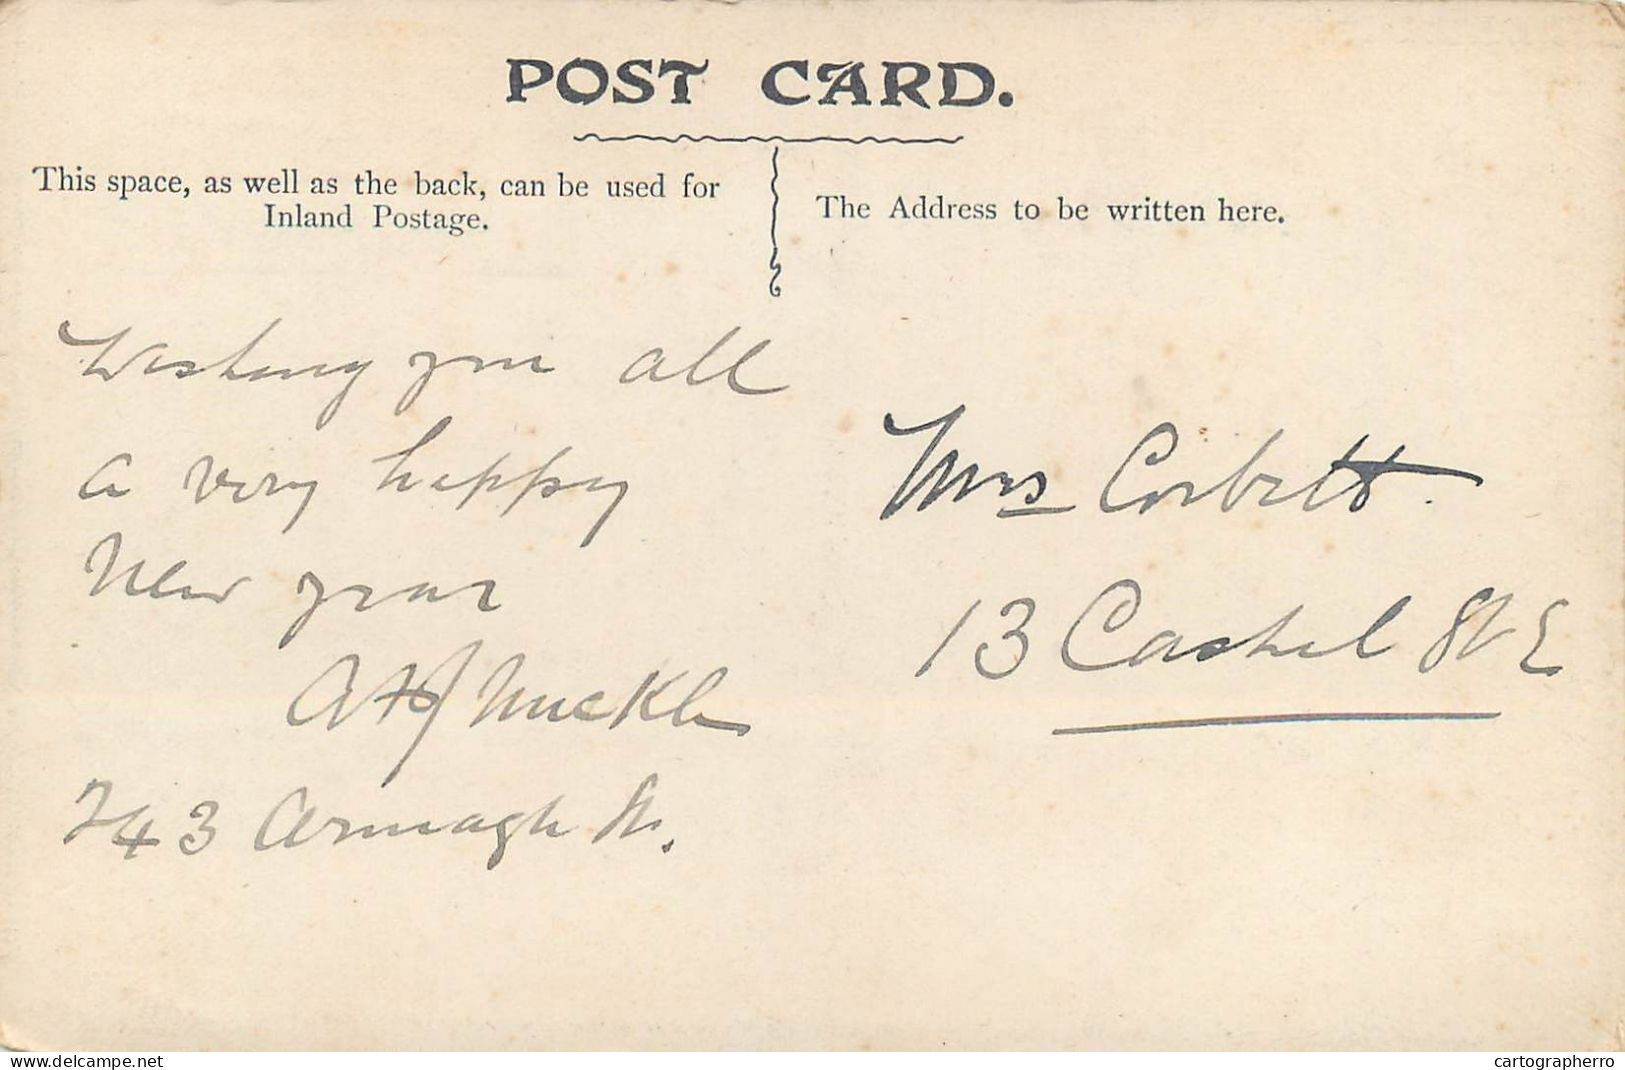 POST CARD.
This space, as well as the back, can be used for
Inland Postage.
The Address to be written here.
Wishing you all
a very happy
New year
Muckle
743 Armagh St.
Mrs Corbett.
13 Cashel St E
delcampe.net
cartographerro